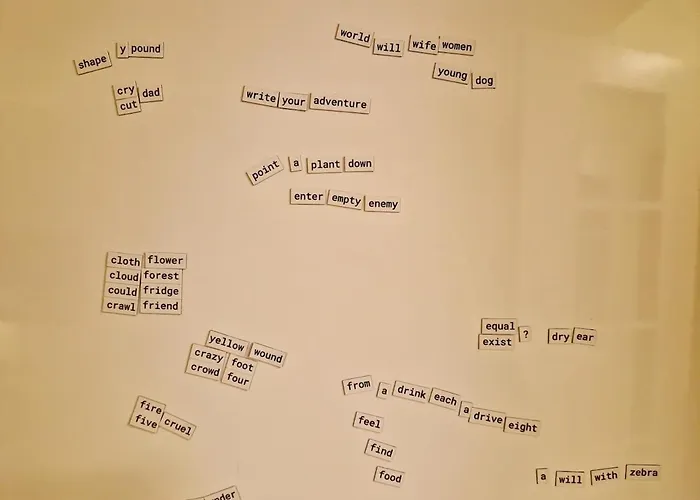 world will wife women
shape y pound
young dog
cry dad
cut
write your adventure
point a plant down
enter empty enemy
cloth flower
cloud forest
could fridge
crawl friend
equal ?
exist
dry ear
yellow wound
crazy foot
crowd four
from a drink each a drive eight
feel
find
food
fire cruel
five
a will with zebra